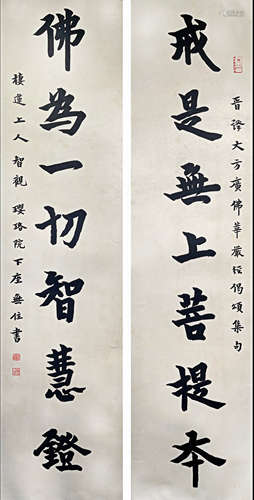 晉譯大方廣佛華嚴經偈頌集句
戒是無上菩提本
佛為一切智慧鐙
樓蓮上人智觀 瓔珞院下座無住書